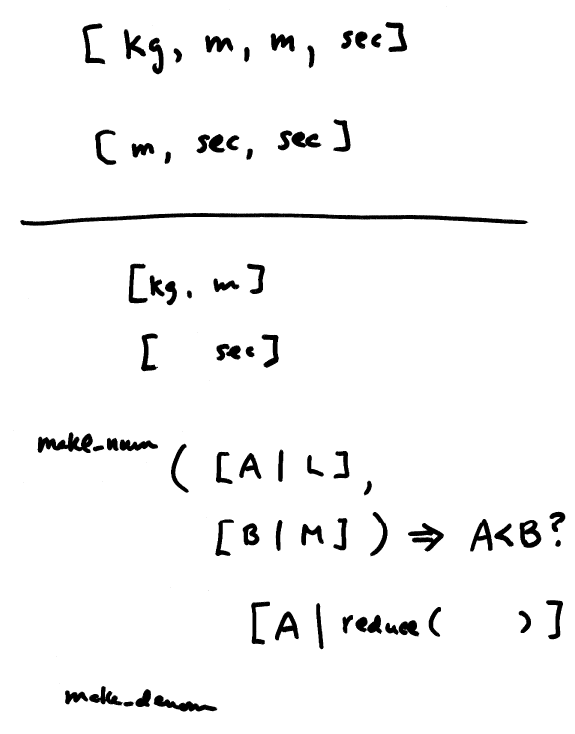 [ kg, m, m, sec]
[ m, sec, sec ]
[kg, m ]
[ sec]
make_num ( [A | L],
[B | M] ) ⇒ A<B?
[A | reduce( )]
make_denom